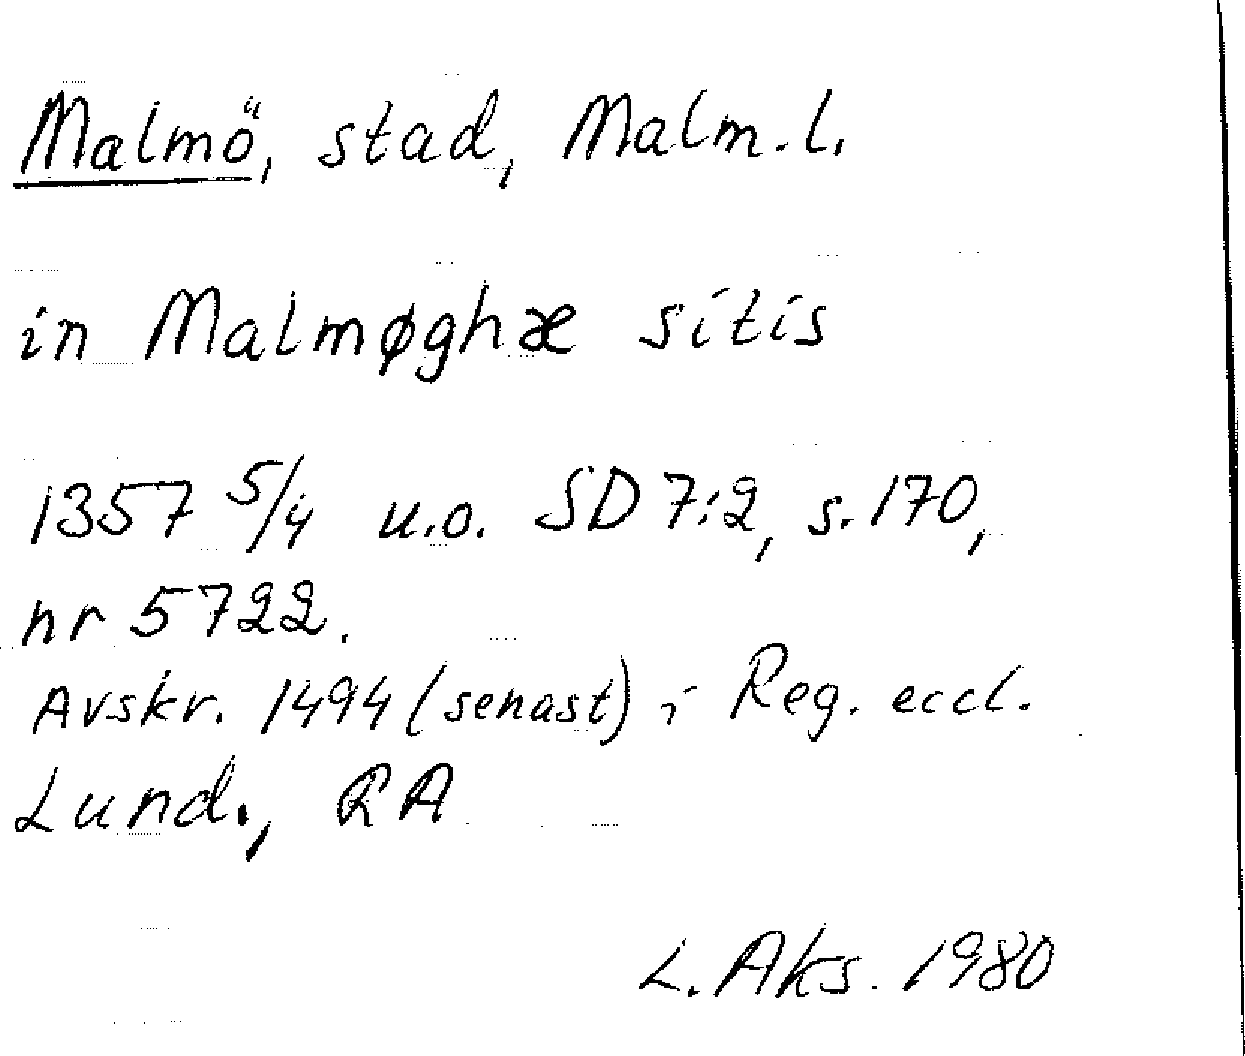 Malmö, stad, Malm. l.
in Malmøghæ sitis
1357 5/4 u.o. SD 7:2, s. 170,
nr 5722.
Avskr. 1494 (senast) i Reg. eccl.
Lund., RA
L. Aks. 1980